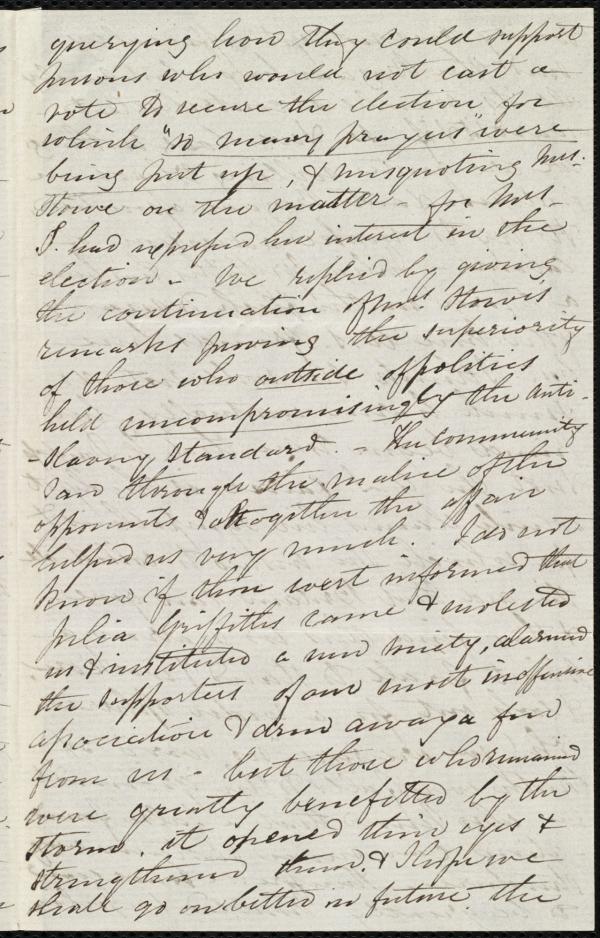 querying how they could support
persons who would not cast a
vote to secure the election for
which "so many prayers" were
being put up, & misquoting Mrs.
Stowe on the matter - for Mrs.
S. had expressed her interest in the
election - We replied by giving
the continuation of Mrs. Stowe's
remarks proving the superiority
of those who outside of politics
held uncompromisingly the Anti-
-slavery Standard. - The Community
saw through the malice of the
opponents & altogether the affair
helped us very much. I do not
know if thou wert informed that
Julia Griffiths came & molested
us & instituted a new society, alarmed
the supporters of our most inoffensive
association & drew away a few
from us - but those who remained
were greatly benefitted by the
storm. it opened their eyes &
strengthened them. & I hope we
shall go on better in future. the